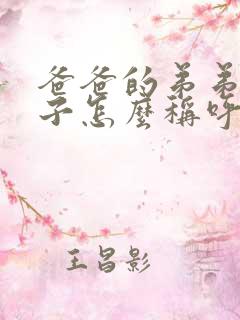 爸爸的弟弟
子怎麼稱呼
王昌影